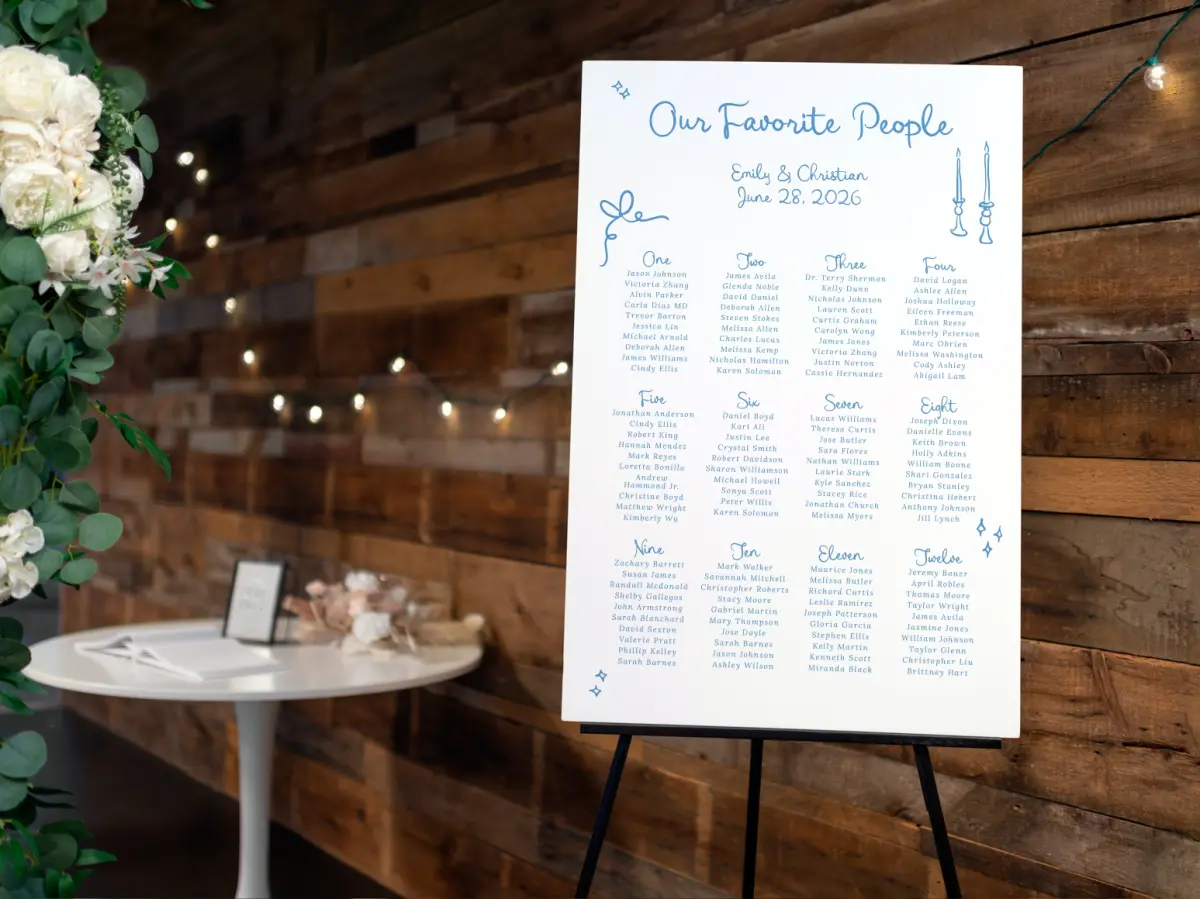 Our Favorite People
Emily & Christian
June 28, 2026
One
Jason Johnson
Victoria Zhang
Alvin Parker
Carla Diaz MD
Trevor Barton
Jessica Lin
Michael Arnold
Deborah Allen
James Williams
Cindy Ellis
Two
James Avila
Glenda Noble
David Daniel
Deborah Allen
Steven Stokes
Melissa Allen
Charles Lucas
Melissa Kemp
Nicholas Hamilton
Karen Solomon
Three
Dr. Terry Sherman
Kelly Dunn
Nicholas Johnson
Lauren Scott
Curtis Graham
Carolyn Wong
James Jones
Victoria Zhang
Justin Norton
Cassie Hernandez
Four
David Logan
Ashlee Allen
Joshua Holloway
Eileen Freeman
Ethan Reese
Kimberly Peterson
Marc Obrien
Melissa Washington
Cody Ashley
Abigail Lam
Five
Jonathan Anderson
Cindy Ellis
Robert King
Hannah Mendez
Mark Reyes
Loretta Bonilla
Andrew
Hammond Jr.
Christine Boyd
Matthew Wright
Kimberly Wu
Six
Daniel Boyd
Kari Ali
Justin Lee
Crystal Smith
Robert Davidson
Sharon Williamson
Michael Howell
Sonya Scott
Peter Willis
Karen Solomon
Seven
Lucas Williams
Therese Curtis
Jose Butler
Sara Flores
Nathan Williams
Laurie Stark
Kyle Sanchez
Stacey Rice
Jonathan Church
Melissa Myers
Eight
Joseph Dixon
Danielle Evans
Keith Brown
Holly Adkins
William Boone
Shari Gonzalez
Bryan Stanley
Christina Hebert
Anthony Johnson
Jill Lynch
Nine
Zachary Barrett
Susan James
Randall Mcdonald
Shelby Gallegos
John Armstrong
Sarah Blanchard
David Sexton
Valerie Pratt
Phillip Kelley
Sarah Barnes
Ten
Mark Walker
Savannah Mitchell
Christopher Roberts
Stacy Moore
Gabriel Martin
Mary Thompson
Jose Doyle
Sarah Barnes
Jason Johnson
Ashley Wilson
Eleven
Maurice Jones
Melissa Butler
Richard Curtis
Leslie Ramirez
Joseph Patterson
Gloria Garcia
Stephen Ellis
Kelly Martin
Kenneth Scott
Miranda Black
Twelve
Jeremy Bauer
April Robles
Thomas Moore
Taylor Wright
James Avila
Jasmine Jones
William Johnson
Taylor Gillespie
Christopher Liu
Brittney Hart